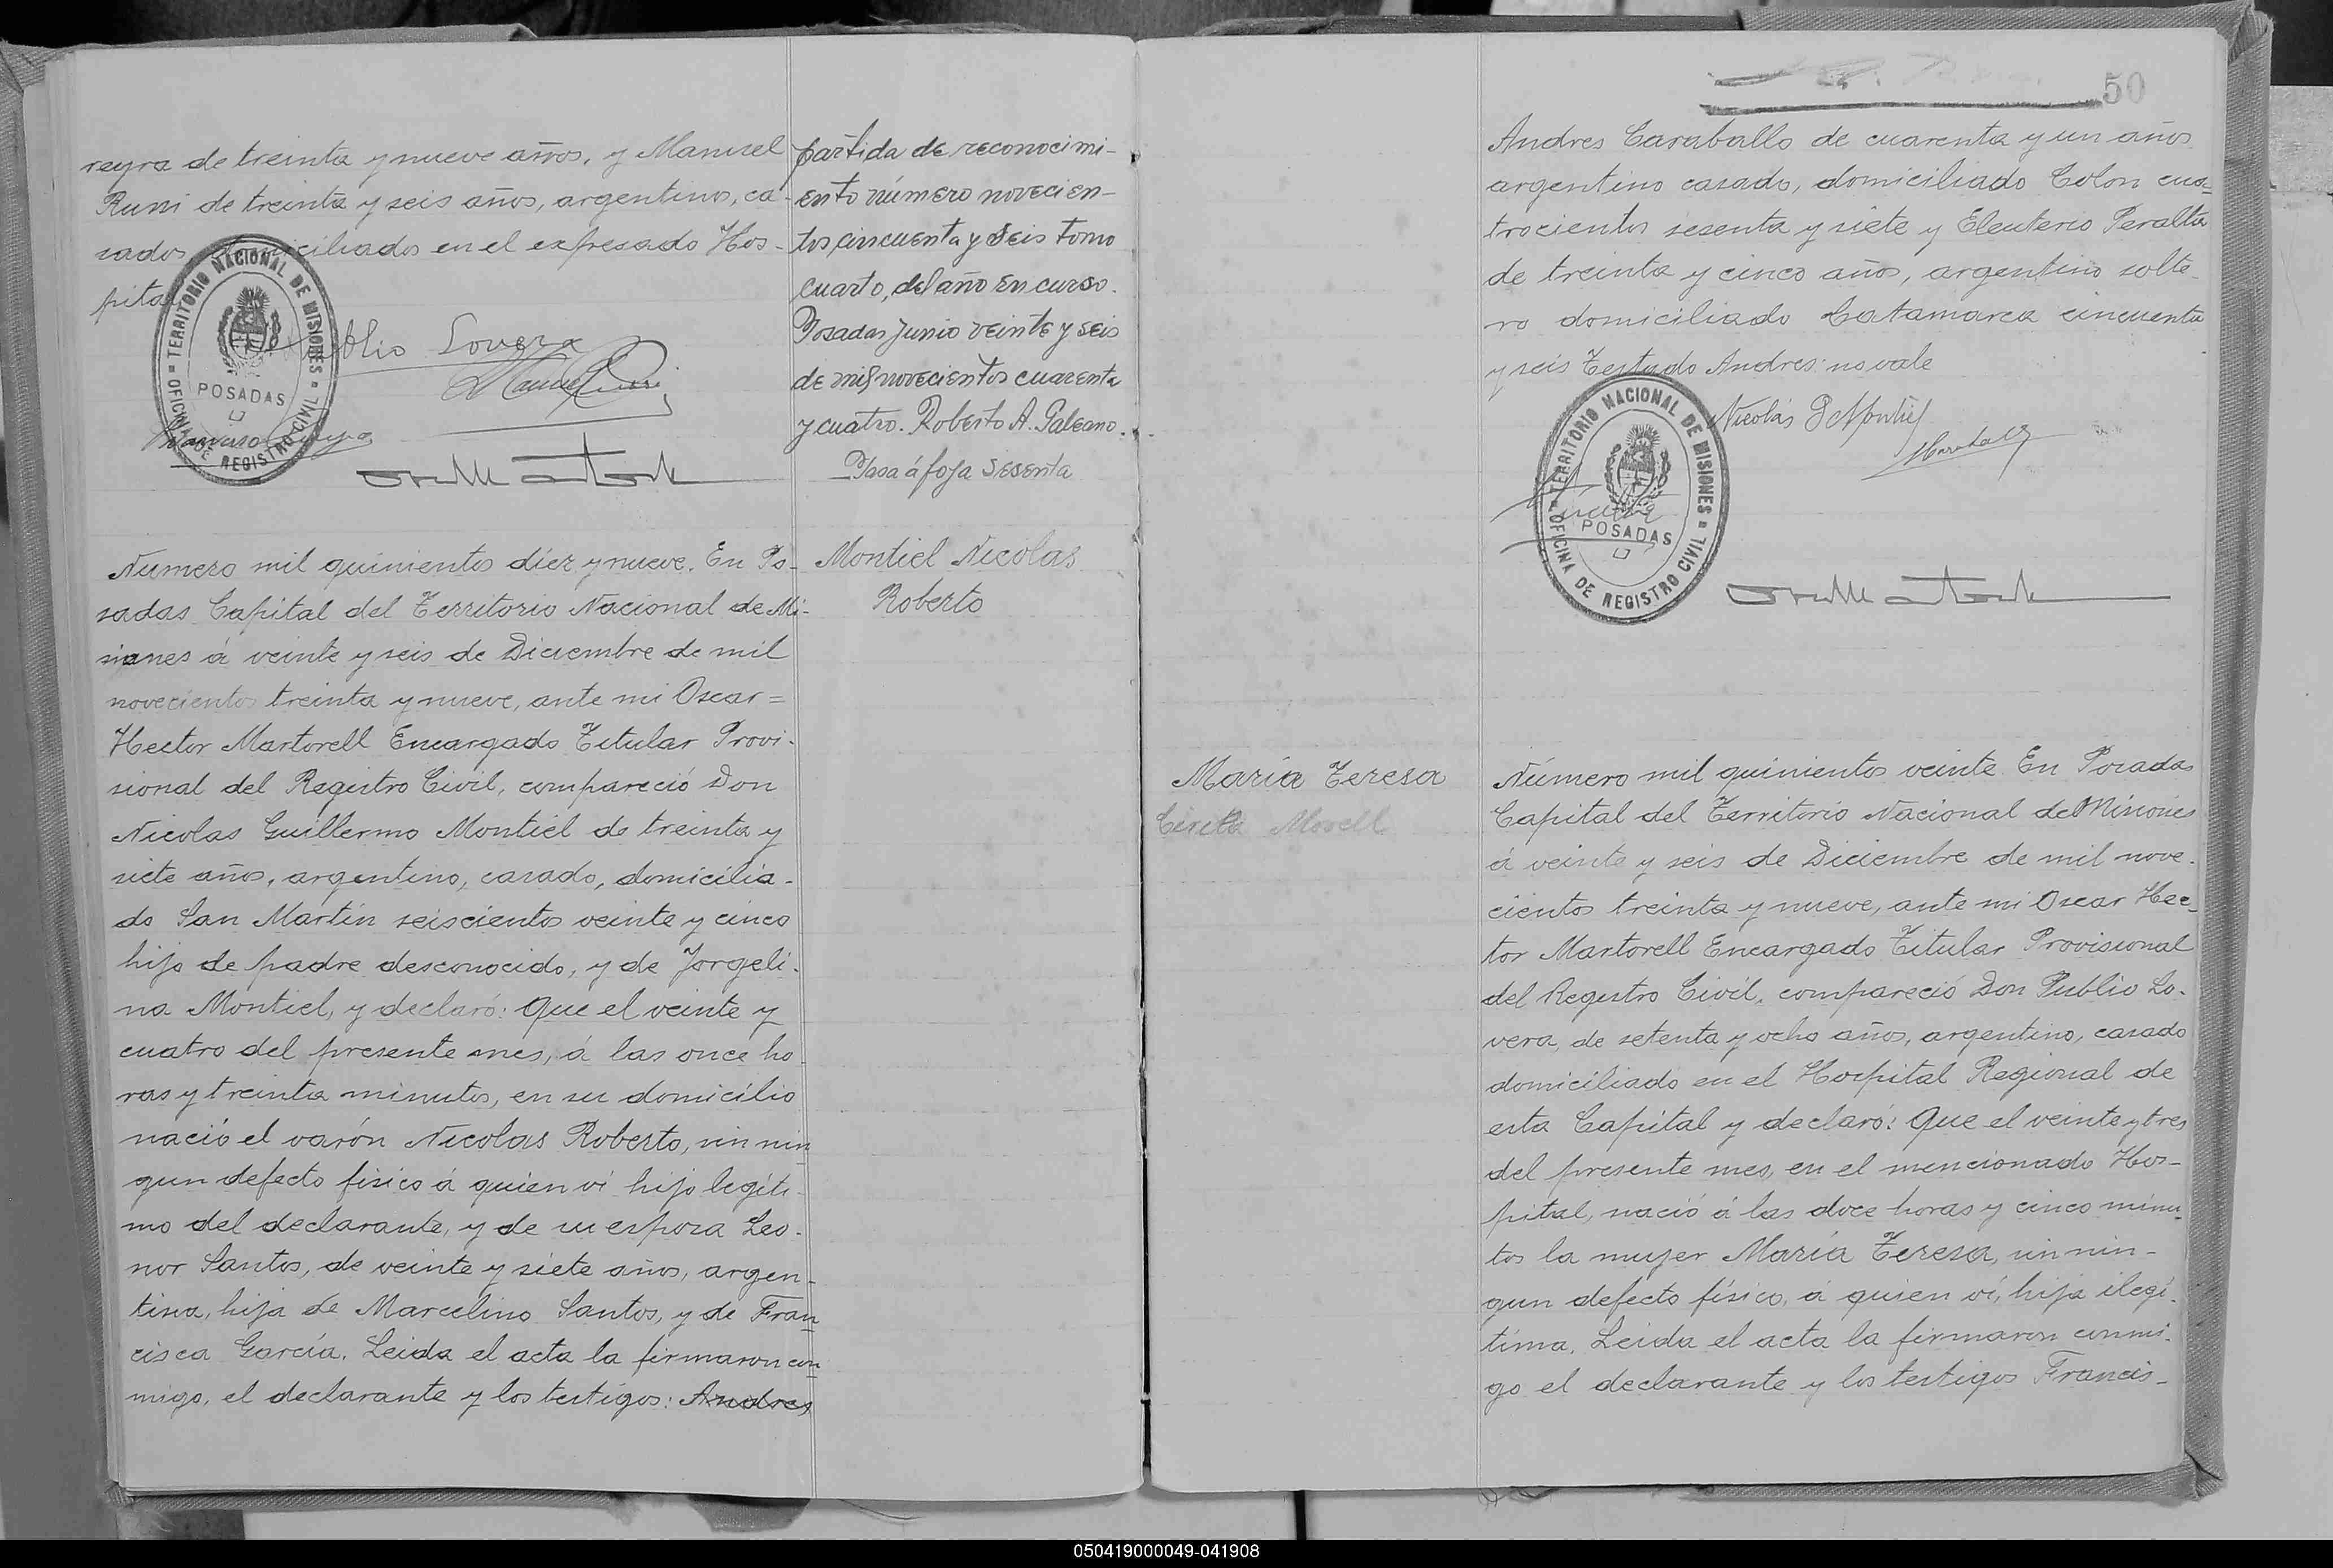 reyra de treinta y nueve años, y Manuel
Runi de treinta y seis años, argentinos, ca-
sados domiciliados en el expresado Hos-
pital
Publio Lovera
TERRITORIO NACIONAL DE MISIONES
POSADAS
OFICINA DE REGISTRO CIVIL
partida de reconocimi-
ento número novecien-
tos cincuenta y seis tomo
cuarto, del año en curso.
Posadas Junio veinte y seis
de mil novecientos cuarenta
y cuatro. Roberto A. Galeano.
Pasa á foja sesenta
Numero mil quinientos diez y nueve. En Po-
sadas Capital del Territorio Nacional de Mi-
siones á veinte y seis de Diciembre de mil
novecientos treinta y nueve, ante mi Oscar=
Hector Martorell Encargado Titular Provi-
sional del Registro Civil, compareció Don
Nicolas Guillermo Montiel de treinta y
siete años, argentino, casado, domicilia-
do San Martin seiscientos veinte y cinco
hijo de padre desconocido, y de Jorgeli-
na Montiel, y declaró: Que el veinte y
cuatro del presente mes, á las once ho-
ras y treinta minutos, en su domicilio
nació el varón Nicolas Roberto, sin nin
gun defecto fisico á quien vi hijo legiti-
mo del declarante, y de su esposa Leo-
nor Santos, de veinte y siete años, argen-
tina, hija de Marcelino Santos, y de Fran
cisca García. Leida el acta la firmaron con
migo, el declarante y los testigos: Andres
Montiel Nicolas
Roberto
50
Andres Caraballo de cuarenta y un años
argentino casado, domiciliado Colon cua-
trocientos sesenta y siete y Eleuterio Peralta
de treinta y cinco años, argentino solte-
ro domiciliado Catamarca cincuenta
y seis Testado Andres: no vale
Nicolás G Montiel
TERRITORIO NACIONAL DE MISIONES
POSADAS
OFICINA DE REGISTRO CIVIL
María Teresa
Número mil quinientos veinte En Posadas
Capital del Territorio Nacional de Misiones
á veinte y seis de Diciembre de mil nove-
cientos treinta y nueve, ante mi Oscar Hec-
tor Martorell Encargado Titular Provisional
del Registro Civil, compareció Don Publio Lo-
vera, de setenta y ocho años, argentino, casado
domiciliado en el Hospital Regional de
esta Capital y declaró: Que el veinte y tres
del presente mes, en el mencionado Hos-
pital, nació á las doce horas y cinco minu-
tos la mujer María Teresa, sin nin-
gun defecto físico, á quien ví, hija ilegi-
tima. Leida el acta la firmaron conmi-
go el declarante y los testigos Francis-
050419000049-041908